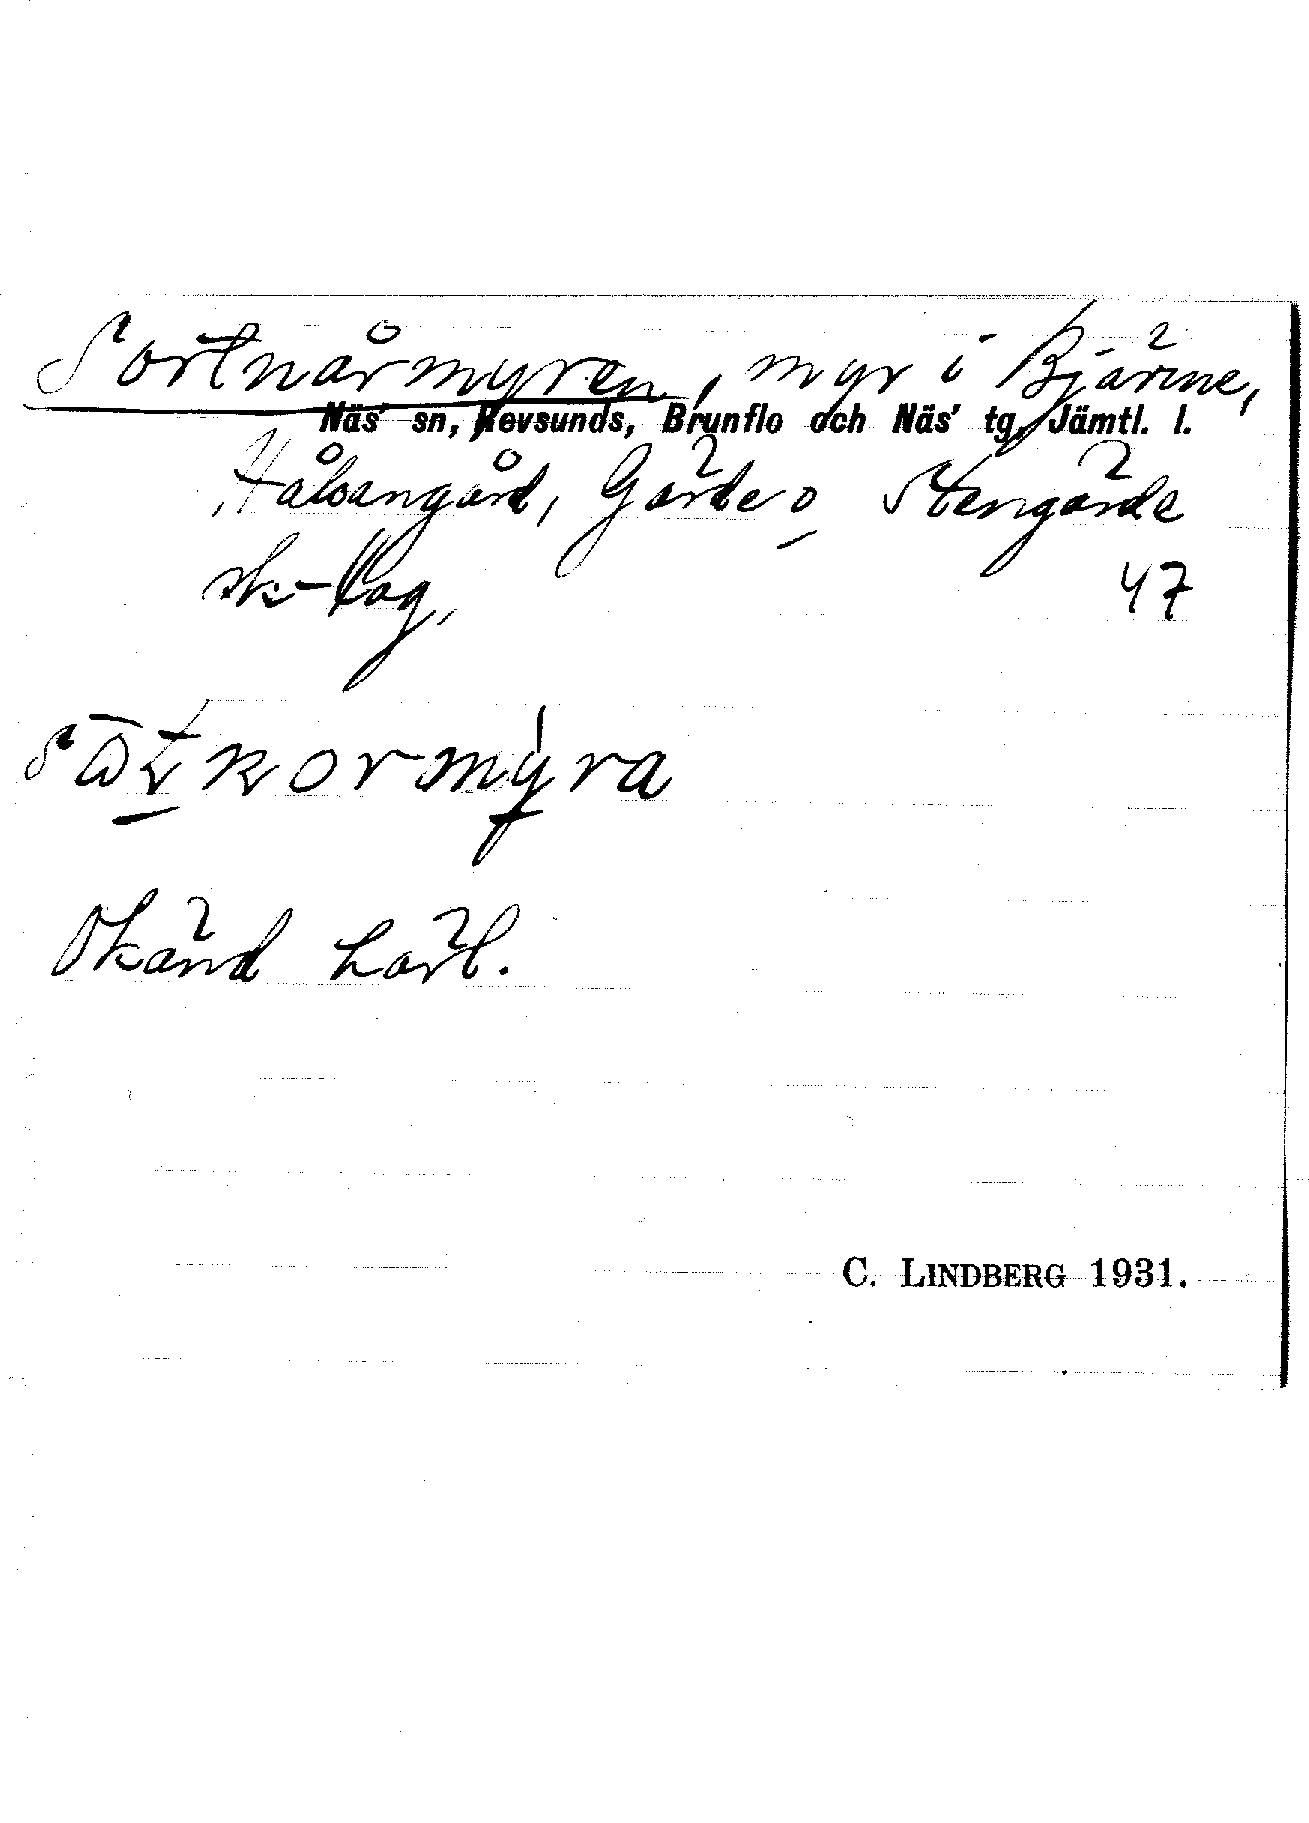 Sortnårmyren, myr i Bjärme,
Näs' sn, Revsunds, Brunflo och Näs' tg, Jämtl. l.
Hålvangård, Gärde o Stengärde
sk-lag, 47
Okänd härl.
C. LINDBERG 1931.